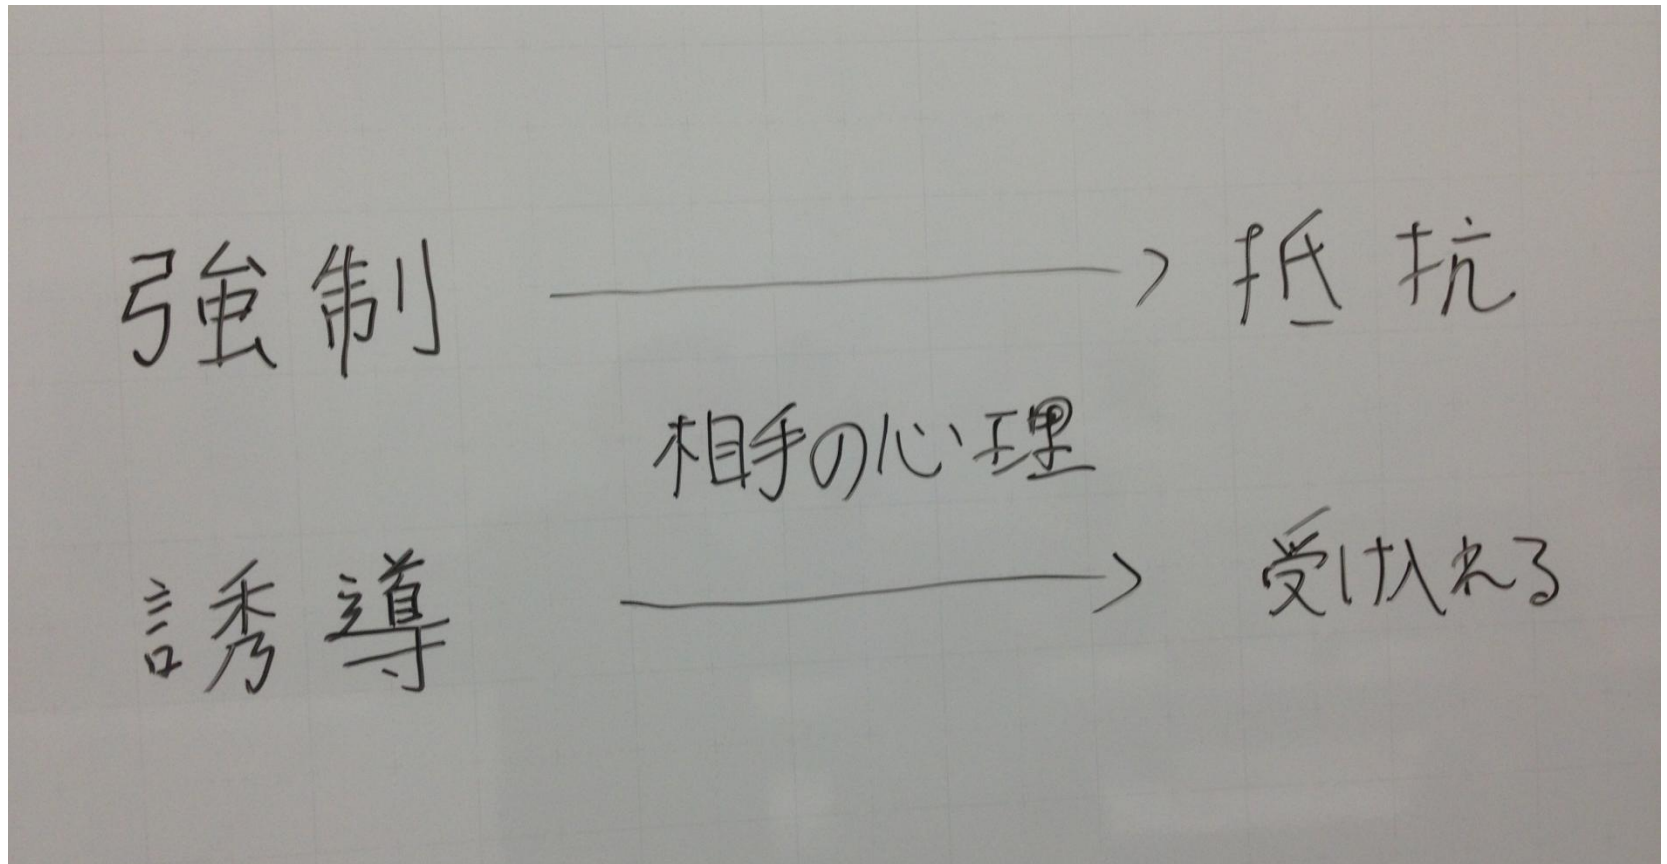 強制 → 抵抗
相手の心理
誘導 → 受け入れる